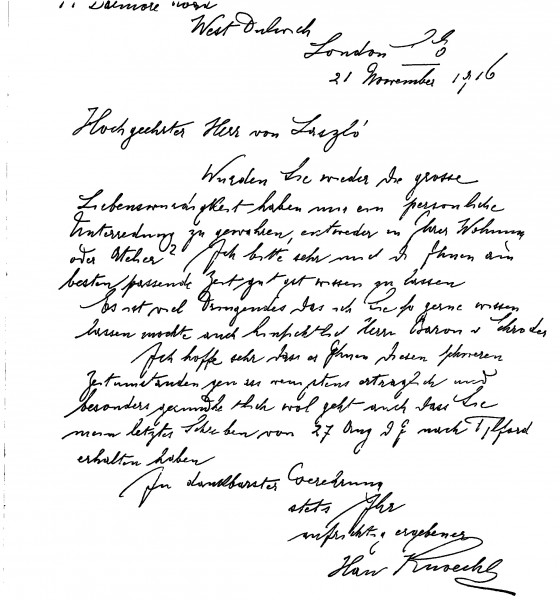 Dalmore Road
West Dulwich
London SE
21 November 1916
Hochgeehrter Herr von Laszló
Wurden Sie wieder die grosse
Liebenswurdigkeit haben mir ein personliche
Unterredung zu gewahren, entweder in Ihrer Wohnung
oder Atelier? Ich bitte sehr mir d Ihnen am
besten passende Zeit gut wissen zu lassen
Es ist viel Dringendes das ich Sie so gerne wissen
lassen mochte auch hinsichtlich Herrn Baron v Schroder
Ich hoffe sehr dass es Ihnen diesen schweren
Zeitumstanden gemass wenigstens ertraglich und
besonders gesundheitlich wol geht auch dass Sie
mein letztes Schreiben von 27 Aug d J nach Tilford
erhalten haben
In dankbarster Verehrung
stets Ihr
aufrichtig ergebener
Hans